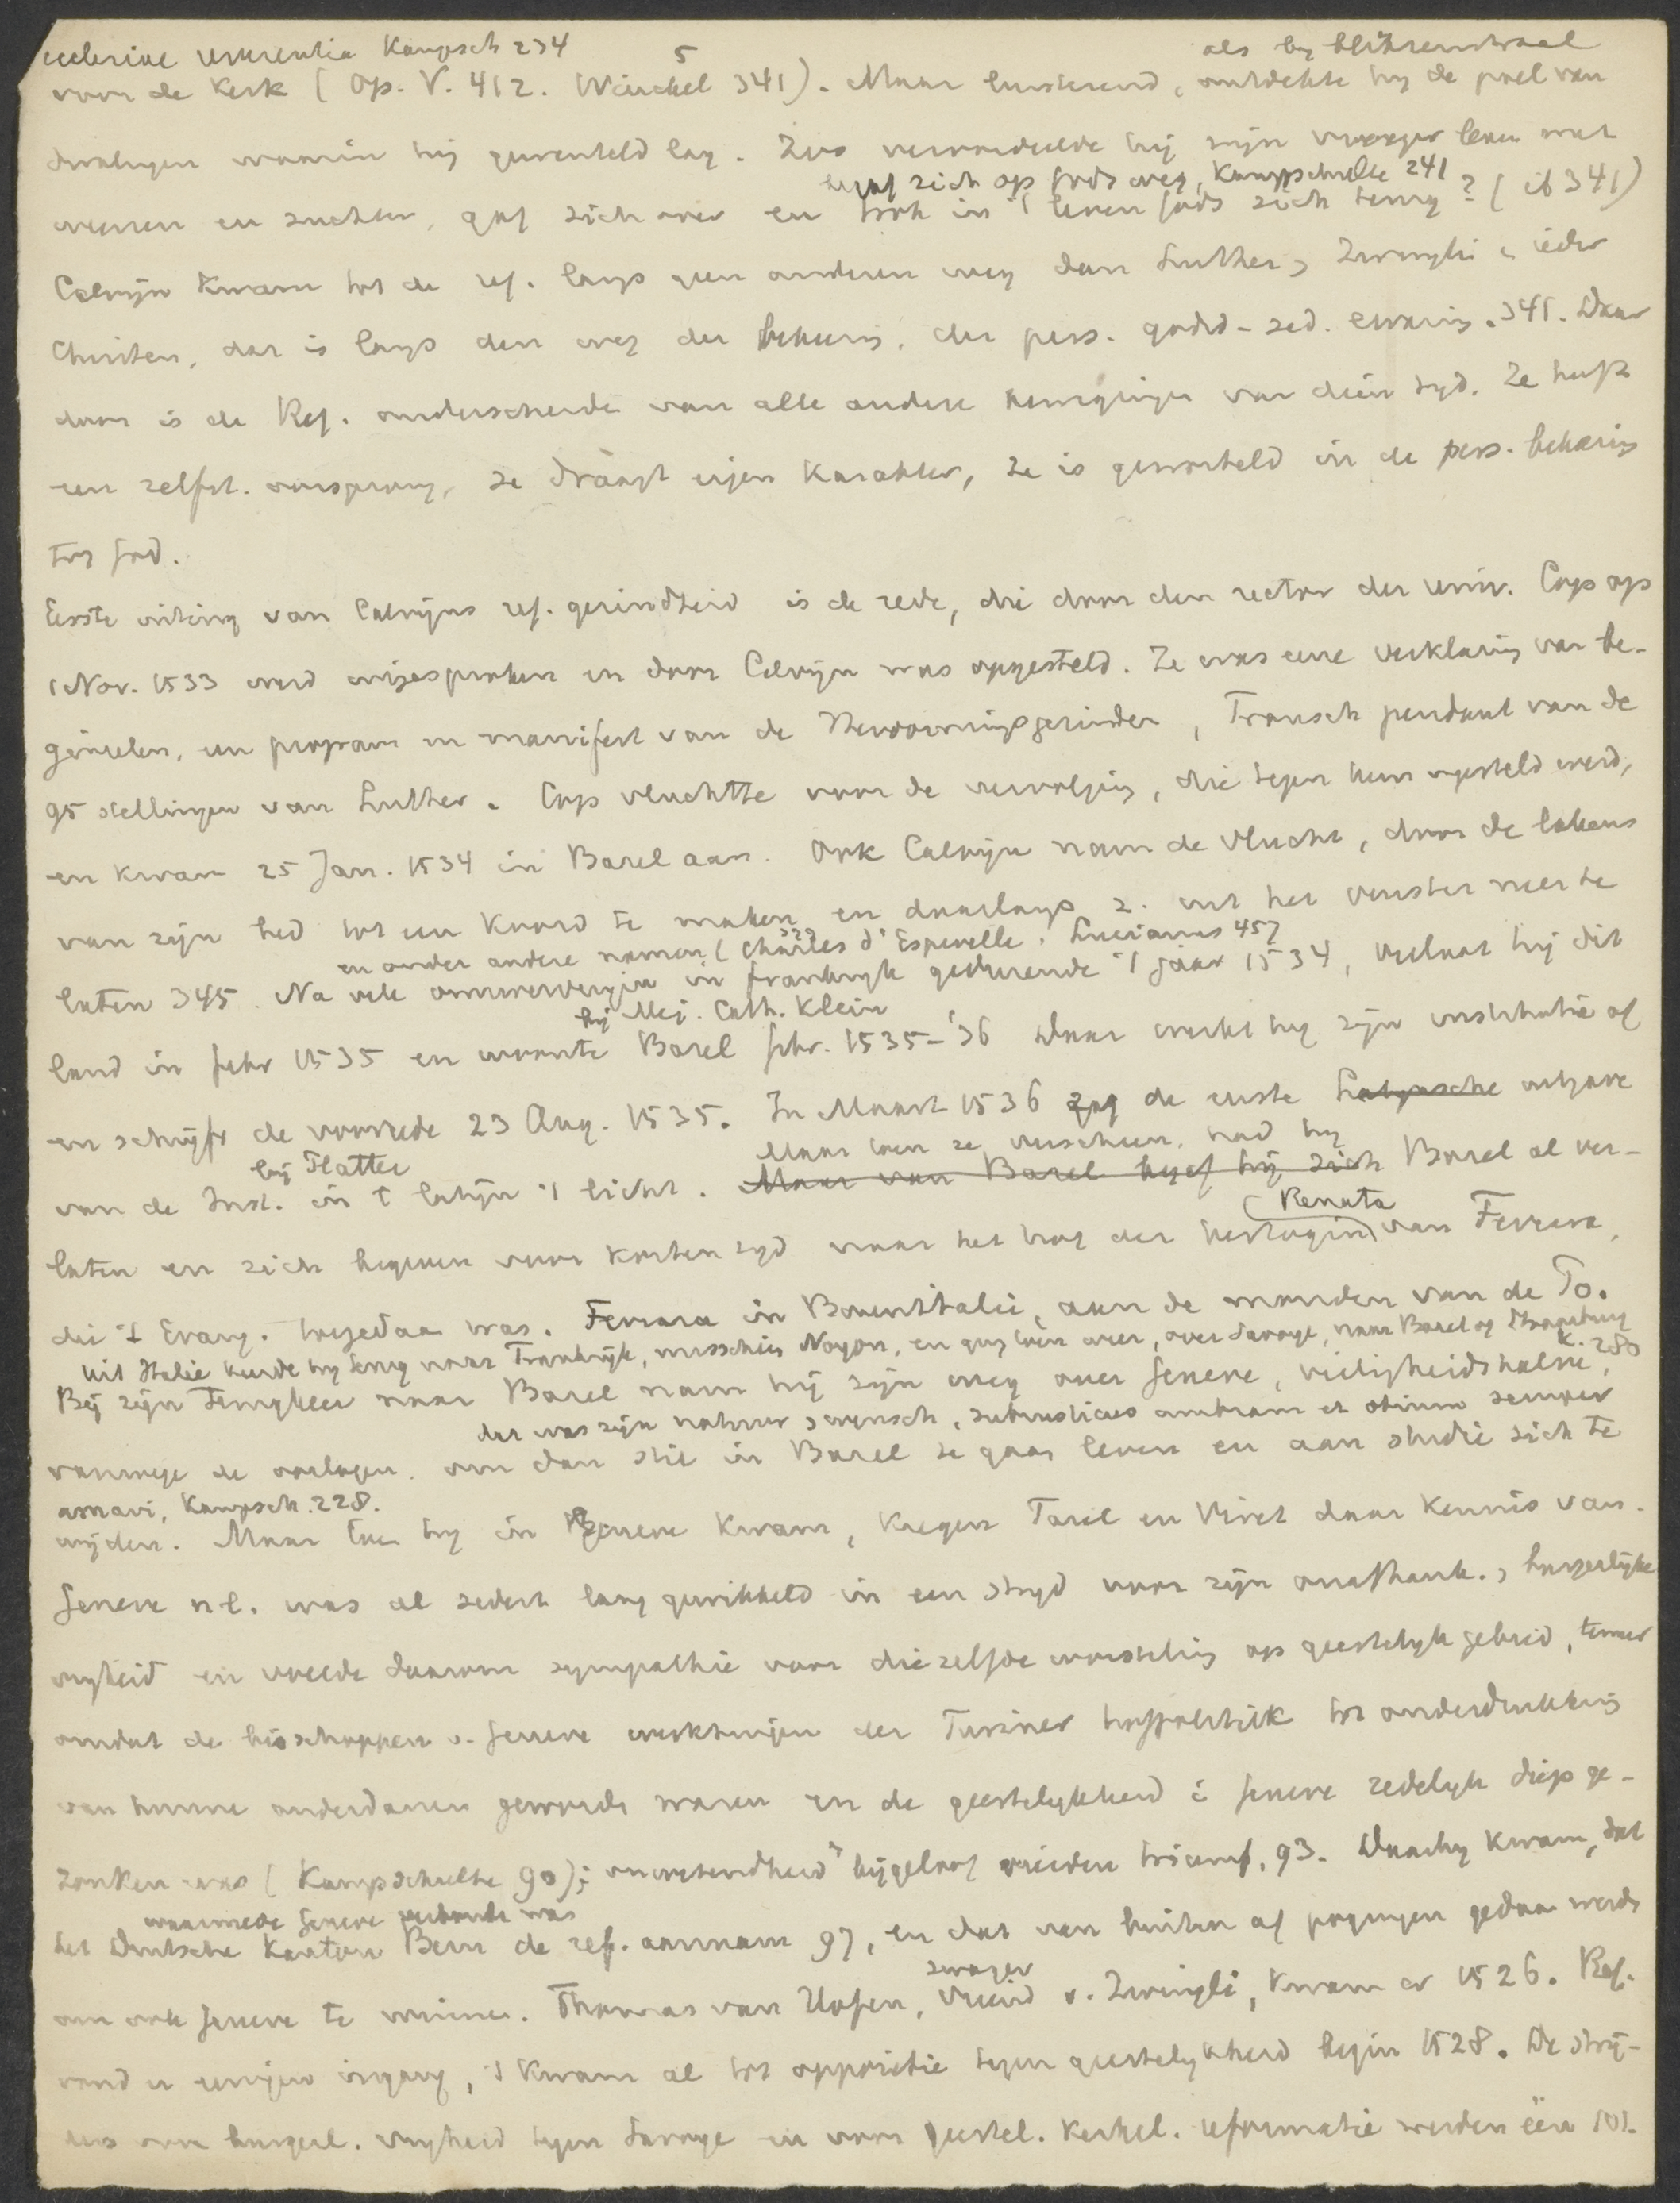 ecclesiae reverentia Kampsch 234 5 als by bliksemstraal
voor de Kerk (Op. V. 412. Winckel 341). Maar luisterend, ontdekte hy de poel van
dwalingen waarin hij gewenteld lag. Zoo veroordeelde hij zijn vroeger leven met
begaf zich op Gods weg, Kampschulte 241
weenen en zuchten, gaf zich over en trok in 't leven Gods zich terug? (ib 341)
Calvijn kwam tot de ref. langs geen anderen weg dan Luther, Zwingli, ieder
Christen, dat is langs den weg der bekeering, der pers. godsd-zed. ervaring. 341. Daar
door is de Ref. onderscheiden van alle andere bewegingen van dien tyd. Ze heeft
een zelfst. oorsprong, ze draagt eigen karakter, ze is geworteld in de pers. bekeering
tog God.
Eerste uiting van Calvijns ref. gezindheid is de rede, die door den rector der univ. Cop op
1 Nov. 1533 werd uitgesproken en door Calvijn was opgesteld. Ze was eene verklaring van be-
ginselen, een program en manifest van de Hervormingsgezinden, Fransch pendant van de
95 stellingen van Luther. Cop vluchtte voor de vervolging, die tegen hem ingesteld werd,
en kwam 25 Jan. 1534 in Basel aan. Ook Calvijn nam de vlucht, door de lakens
van zijn bed tot een koord te maken en daarlangs z. uit het venster neer te
en onder andere namen (Charles d'Espeville, Lucianus 457
laten 345. Na vele omzwervingen in Frankryk gedurende 't jaar 1534, verliet hij dit
bij Mej. Cath. Klein
land in febr 1535 en woonte Basel febr. 1535-'36 Daar werkt hy zijn institutie af
en schryft de voorrede 23 Aug. 1535. In Maart 1536 zag de eerste Latynsche uitgave
bij Platter Maar toen ze verscheen, had hy
van de Inst. in 't latijn 't licht. Maar van Basel begaf hij zich Basel al ver-
Renata
laten en zich begeven voor korten tyd naar het hof der hertogin van Ferrara,
die 't Evang. toegedaan was. Ferrara in Bovenitalië, aan de monden van de Po.
Uit Italie keerde hy terug naar Frankrijk, misschien Noyon, en ging toen weer, over Savoye, naar Basel of Straatsburg K. 280
Bij zijn terugkeer naar Basel nam hij zijn weg over Geneve, veiligheidshalve,
dat was zijn natuur, wensch, subrusticus umbram et otium semper
vanwege de oorlogen. om dan stil in Basel te gaan leven en aan studie zich te
amavi, Kampsch. 228.
wijden. Maar toen hy in Geneve kwam, kregen Farel en Viret daar kennis van.
Geneve n.l. was al sedert lang gewikkeld in een stryd voor zijn onafhank., burgerlijke
vryheid en voelde daarom sympathie voor diezelfde worsteling op geestelyk gebied, temeer
omdat de bisschoppen v. Geneve werktuigen der Turiner hofpolitiek tot onderdrukking
van hunne onderdanen geworden waren en de geestelykheid i Geneve zedelyk diep ge-
zonken was (Kampschulte 90); onwetendheid bijgeloof vierden triomf, 93. Daarby kwam, dat
waarmede Geneve verbonden was
het Duitsche Kanton Bern de ref. aannam 97, en dat van buiten af pogingen gedaan werden
zwager
om ook Geneve te winnen. Thomas van Hofen, vriend v. Zwingli, kwam er 1526. Ref.
vond er eenigen ingang, 't kwam al tot oppositie tegen geestelykheid begin 1528. De stry-
ders voor burgerl. vryheid tegen Savoye en voor geestel. kerkel. reformatie werden één 101.